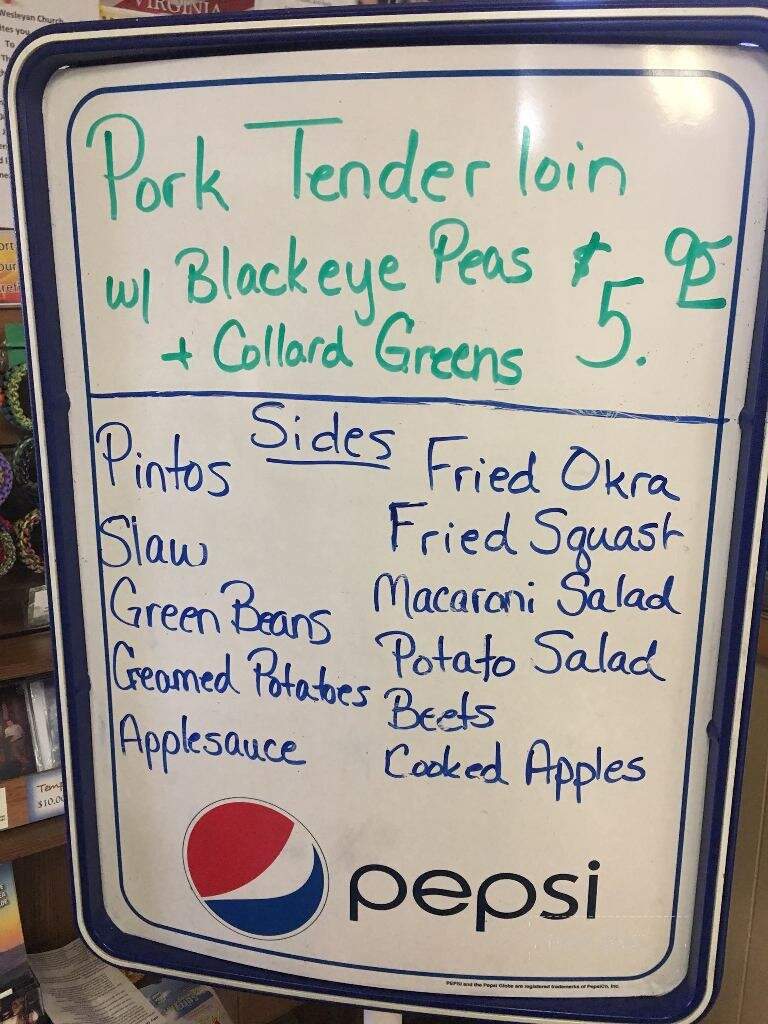 Wesleyan Church
VIRGINIA
To
Pork Tender loin
w/ Blackeye Peas $5.95
+ Collard Greens
Sides
Pintos
Slaw
Green Beans
Creamed Potatoes
Applesauce
Fried Okra
Fried Squash
Macaroni Salad
Potato Salad
Beets
Cooked Apples
$10.00
pepsi
PEPSI and the Pepsi Globe are registered trademarks of PepsiCo, Inc.